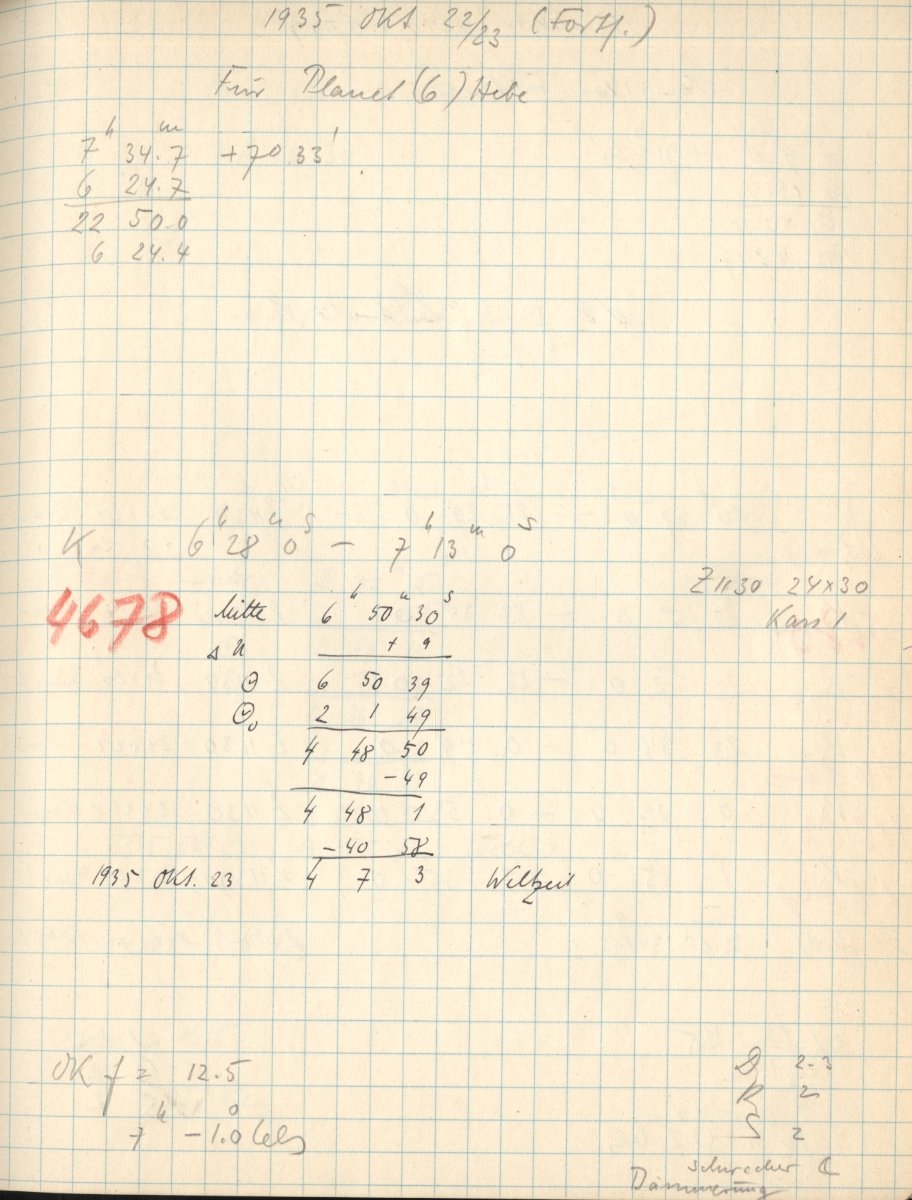 1935 Okt. 22/23 (Forts.)
Für Planet (6) Hebe
7ʰ 34.7ᵐ +7° 33'
6 24.7
22 50.0
6 24.4
K 6ʰ 28ᵐ 0ˢ — 7ʰ 13ᵐ 0ˢ
Z 1130 24×30
4678 Mitte 6ʰ 50ᵐ 30ˢ
Kass 1
Δu + 9
☉ 6 50 39
☉₀ 2 1 49
4 48 50
-49
4 48 1
-40 58
1935 Okt. 23 4 7 3 Weltzeit
OK f = 12.5
7ʰ -1.0° Cels
D 2-3
R 2
S 2
schwacher ☾
Dämmerung